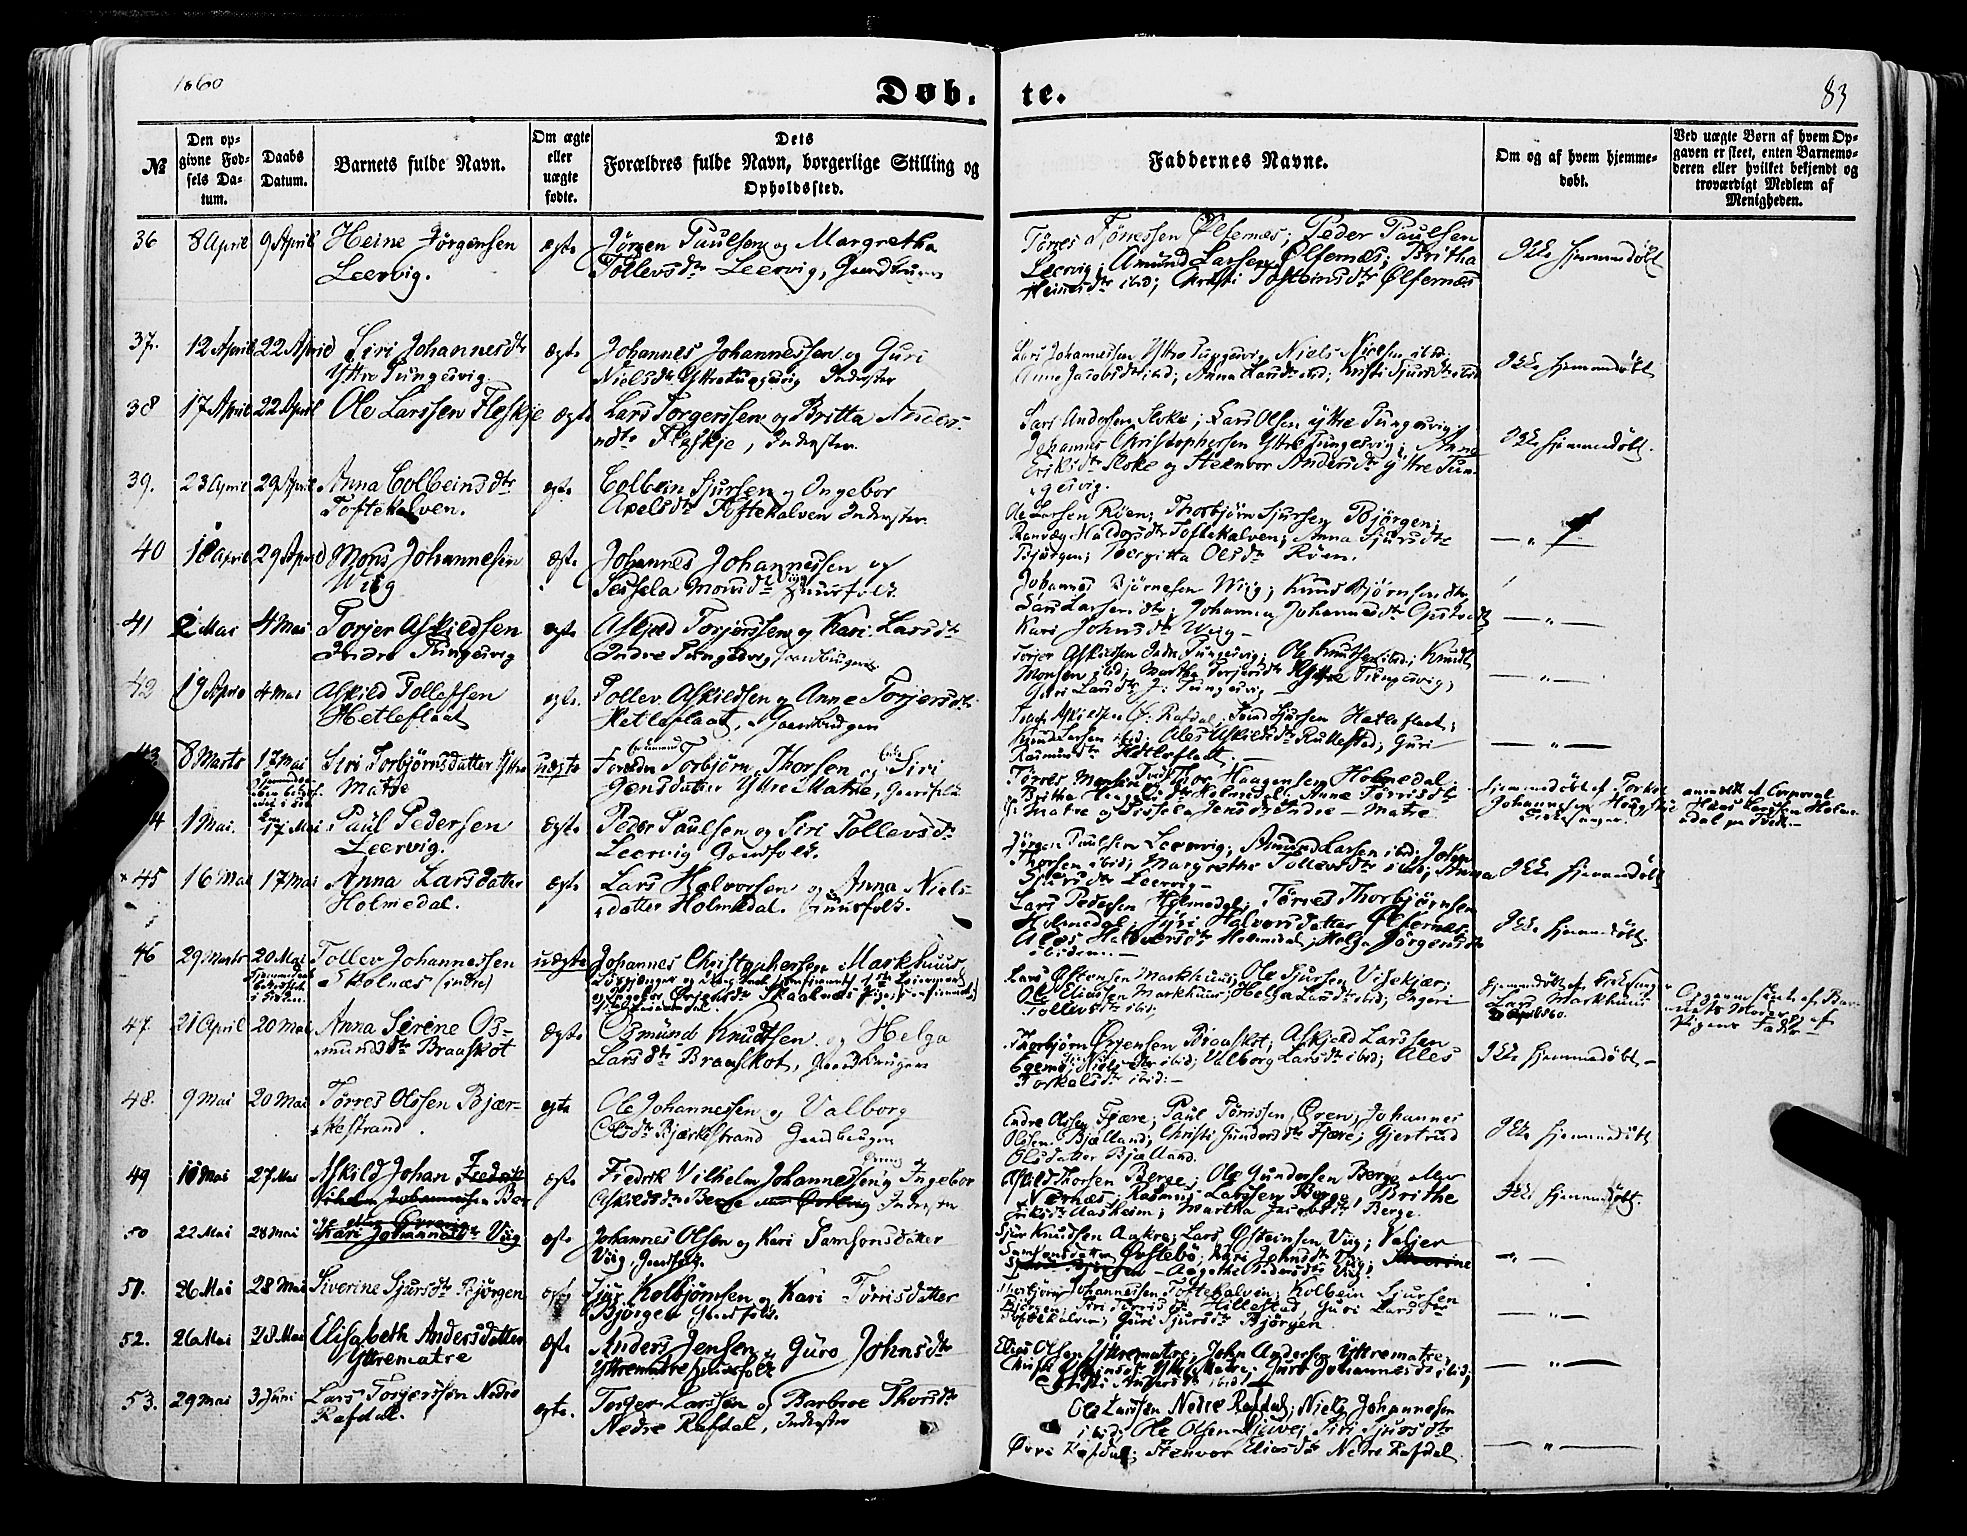 1860
Døb.
te.
83
№
Den op-
givne Fød-
sels Da-
tum.
Daabs
Datum.
Barnets fulde Navn.
Om ægte
eller
uægte
fødte.
Dets
Forældres fulde Navn, borgerlige Stilling og
Opholdssted.
Faddernes Navne.
Om og af hvem hjemme-
døbt.
Ved uægte Børn af hvem Op-
gaven er skeet, enten Barnemo-
deren eller hvilket bekjendt og
troværdigt Medlem af
Menigheden.
36 8 April 9 April Heine Jørgensen
Leervig.
ægte
Jørgen Paulsen og Margretha
Tollevsdtr Leervig, Gaardbruger
Tørres Tønnessen Ølfernæs; Peder Paulsen
Leervig; Amund Larsen Ølfernæs; Britha
Heinesdtr ibid; Christi Tosteinsdtr Ølfernæs
Ikke hjemmedøbt
37. 12 April 22 April Siri Johannesdtr
Yttre Tungesvig
ægte
Johannes Johannessen og Guri
Nielsdtr Yttretungesvig Inderster
Lars Johannessen Yttre Tungesvig, Niels Nielsen ibid;
Anna Jacobsdtr ibid; Anna Larsdtr ibid; Kristi Sjursdtr ibid
Ikke hjemmedøbt
38 17 April 22 April Ole Larssen Fleskje ægte
Lars Torgerssen og Britta Anders-
dtr Fleskje, Inderster.
Lars Andersen Stoke; Lars Olsen yttre Tungesvig;
Johannes Christophersen Yttre Tungesvig; Anna
Eriksdtr Stoke og Steenvor Andersdtr yttre Tun-
gesvig.
Ikke hjemmedøbt.
39. 23 April 29 April Anna Colbeinsdtr
Toftekalven.
ægte
Colbein Sjursen og Ongebor
Axelsdtr Toftekalven Inderster.
Ole Larsen Røen; Thorbjørn Sjursen Bjørgen;
Ranveg Haldorsdtr Toftekalven; Anna Sjursdtr
Bjørgen; Bergitta Olsdtr Røen.
— „ —
40 18 April 29 April Mons Johannesen
Wiig
ægte
Johannes Johannessen og
Sessela Monsdtr Viig Huusfolk
Johannes Bjørnesen Wiig; Knud Bjørnsen
Kari Johnsdtr Wiig —
— „ —
41 2 Mai 4 Mai Torjer Askildsen
Indre Tungesvig
ægte
Askjeld Torjerssen og Kari Larsdtr
Indre Tungesvig, Gaardbruger
Torjer Askildsen Indre Tungesvig; Ole Knutsen ibid; Knud
Monsen ibid; Martha Torjersdtr Yttre Tungesvig;
Guri Larsdtr J. Tungesvig —
— „ —
42 19 April 4 Mai Askild Tollefsen
Hetleflaat
ægte.
Tollev Askildsen og Anne Torjersdtr
Hetleflaat, Gaardbruger
Knud Larsen ibid; Ales Askildsdtr Rullestad; Guri
Rasmusdtr Hetleflaat —
— „ —
43 8 Marts 17 Mai Siri Torbjørnsdatter Yttre
Matre
uægte
Torbjørn Thorsen og Siri
Jensdatter Yttre Matre, Huusfolk
Tørres Monsen Tvet; Thor Haagensen Holmedal
Holmedal; Anne Torrisdtr
J. Matre og Sissela Jensdtr Indre-Matre
hjemmedøbt af Torkel
Johannesen Haugstad
Kirkesanger.
anmeldt af Corporal
Hans Larsen Holme-
dal
44 1 Mai. 17 Mai Paul Pedersen
Leervig.
ægte
Peder Paulsen og Siri Tollevsdtr
Leervig Gaardfolk.
Jørgen Paulsen Leervig; Amund Larsen ibid; Johan
Thorsen ibid; Margrethe Tollevsdtr ibid; Anna
Sjursdtr Leervig —
Ikke hjemmedøbt
45 16 Mai 17 Mai Anna Larsdatter
Holmedal.
ægte
Lars Halvorsen og Anna Niels-
datter Holmedal. Huusfolk.
Lars Pedersen Holmedal; Tørres Thorbjørnsen
Holmedal; Siri Halvorsdatter Ølfernæs
Ales Halvorsdtr Holmedal; Helga Jørgensdtr
ibidem.—
Ikke hjemmedøbt
46 29 Marts 20 Mai Tollev Johannessen
Skolnæs (indre)
uægte
Johannes Christophersen Markhuus
Lars Østensen Markhuus; Ole Sjursen Vikekjær;
Ole Eliassen Markhuus; Helga Larsdtr ibid; Ingeri
Tollevsdtr ibid;
hjemmedøbt af
Lars Markhuus
Opgaven skeet af Bar-
nets Moder og af
Pigens Fader —
47. 21 April 20 Mai Anna Serine Os-
mundsdtr Braaskot
ægte
Osmund Knudtsen og Helga
Larsdtr Braaskot, Gaardbruger
Thorbjørn Ørjensen Braaskot; Askjeld Larssen
Egemo; Siri Nielsdtr ibid; Valborg Larsdtr ibid; Ales
Torkalsdtr ibid:—
Ikke hjemmedøbt —
48. 9 Mai 20 Mai Tørres Olssen Bjær-
kestrand.
ægte
Ole Johannessen og Valborg
Olsdtr Bjærkestrand Gaardbruger
Endre Olssen Fjære; Paul Tørrissen Øren; Johannes
Olssen Bjælland; Christi Gundersdtr Fjære; Gjertrud
Olsdatter Bjælland.
Ikke hjemmedøbt
49 10 Mai 27 Mai Askild Johan Fredrik
Vilhelm Johannessen Ber
ægte
Fredrik Vilhelm Johannessen og Ingebor
Askildsdtr Berge
Askild Thorsen Berge; Ole Gundersen Berge
Vernæs; Rasmus Larssen Berge; Brithe
Eriksdtr Aasheim; Martha Jacobsdtr Berge.
Ikke hjemmedøbt.
50 22 Mai 28 Mai Kari Johannesdtr Viig ægte
Johannes Olsen og Kari Samsonsdatter
Viig, Huusfolk.
Sjur Knudsen Aakre; Lars Østeinsen Viig; Valjer
Samsonsdatter Øvstebø; Kari Johnsdtr Viig; Siverine
— Aagethe Pedersdtr Viig
— „ —
51. 26 Mai 28 Mai Siverine Sjursdtr Bjørgen ægte
Sjur Kolbjørnsen og Kari Tørrisdatter
Bjørgen Huusfolk.
Thorbjørn Johannessen Toftekalven; Kolbein Sjursen
Bjørgen; Siri Tørrisdtr Hillestad; Guri Larsdtr
Toftekalven; Guri Sjursdtr Bjørgen
— „ —
52. 26 Mai 28 Mai Elisabeth Andersdatter
Yttrematre
ægte
Anders Jensen og Guro Johnsdtr
Yttrematre Huusfolk
Elias Olsen Yttrematre; John Andersen Yttrematre;
Christi Østeinsdtr Yttre Matre; Guro Johannesdtr ibid;
Christi Andersdtr ibid
— „ —
53. 29 Mai 3 Juni Lars Torjerssen Nedre
Rafdal.
ægte.
Torger Larssen og Barbroe Thorsdtr
Nedre Rafdal, Inderster
Ole Larssen Nedre Rafdal; Niels Johannesen
ibid; Ole Olsen Djuve; Siri Sjursdtr
Øvre Rafdal; Stenvor Eliasdtr Nedre Rafdal
— „ —